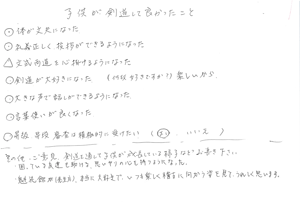 子供が剣道して良かったこと
○体が丈夫になった
○礼義正しく、挨拶ができるようになった
△文武両道を心掛けるようになった
○剣道が大好きになった (何故好きですか?) 楽しいから
○大きな声で話しができるようになった
○言葉使いが良くなった
○昇級、昇段、審査は積極的に受けたい (はい、いいえ)
その他、ご意見、剣道を通して子供が成長している様子などお書き下さい。
困っている友達を助ける、思いやりの心を持てるようになった。
も大好きで、いつも楽しく稽古に向かう姿を見て、うれしく思います。